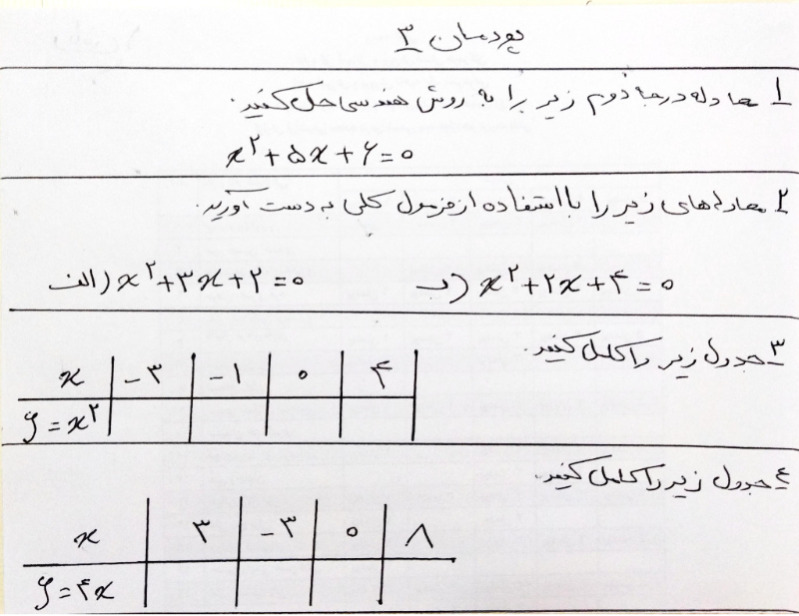 پودمان ۳
۱ معادله درجه دوم زیر را به روش هندسی حل کنید.
x²+۵x+۶=۰
۲ معادله‌های زیر را با استفاده از فرمول کلی به دست آورید.
الف) x²+۳x+۲=۰ ب) x²+۲x+۴=۰
۳ جدول زیر را کامل کنید.
x | -۳ | -۱ | ۰ | ۴
y=x²
۴ جدول زیر را کامل کنید.
x | ۳ | -۳ | ۰ | ۸
y=۴x